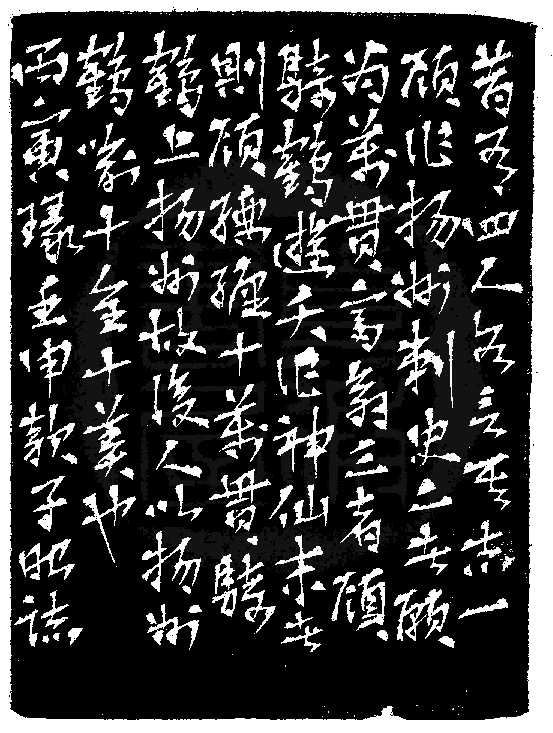 昔有四人各言其志一
願作扬州刺史二者願
为萬貫富翁三者願
騎鶴遊天作神仙末者
則願腰纏十萬貫騎
鶴上扬州故後人以扬州
鶴喻十全十美也
丙寅瑑壬申款子昭誌